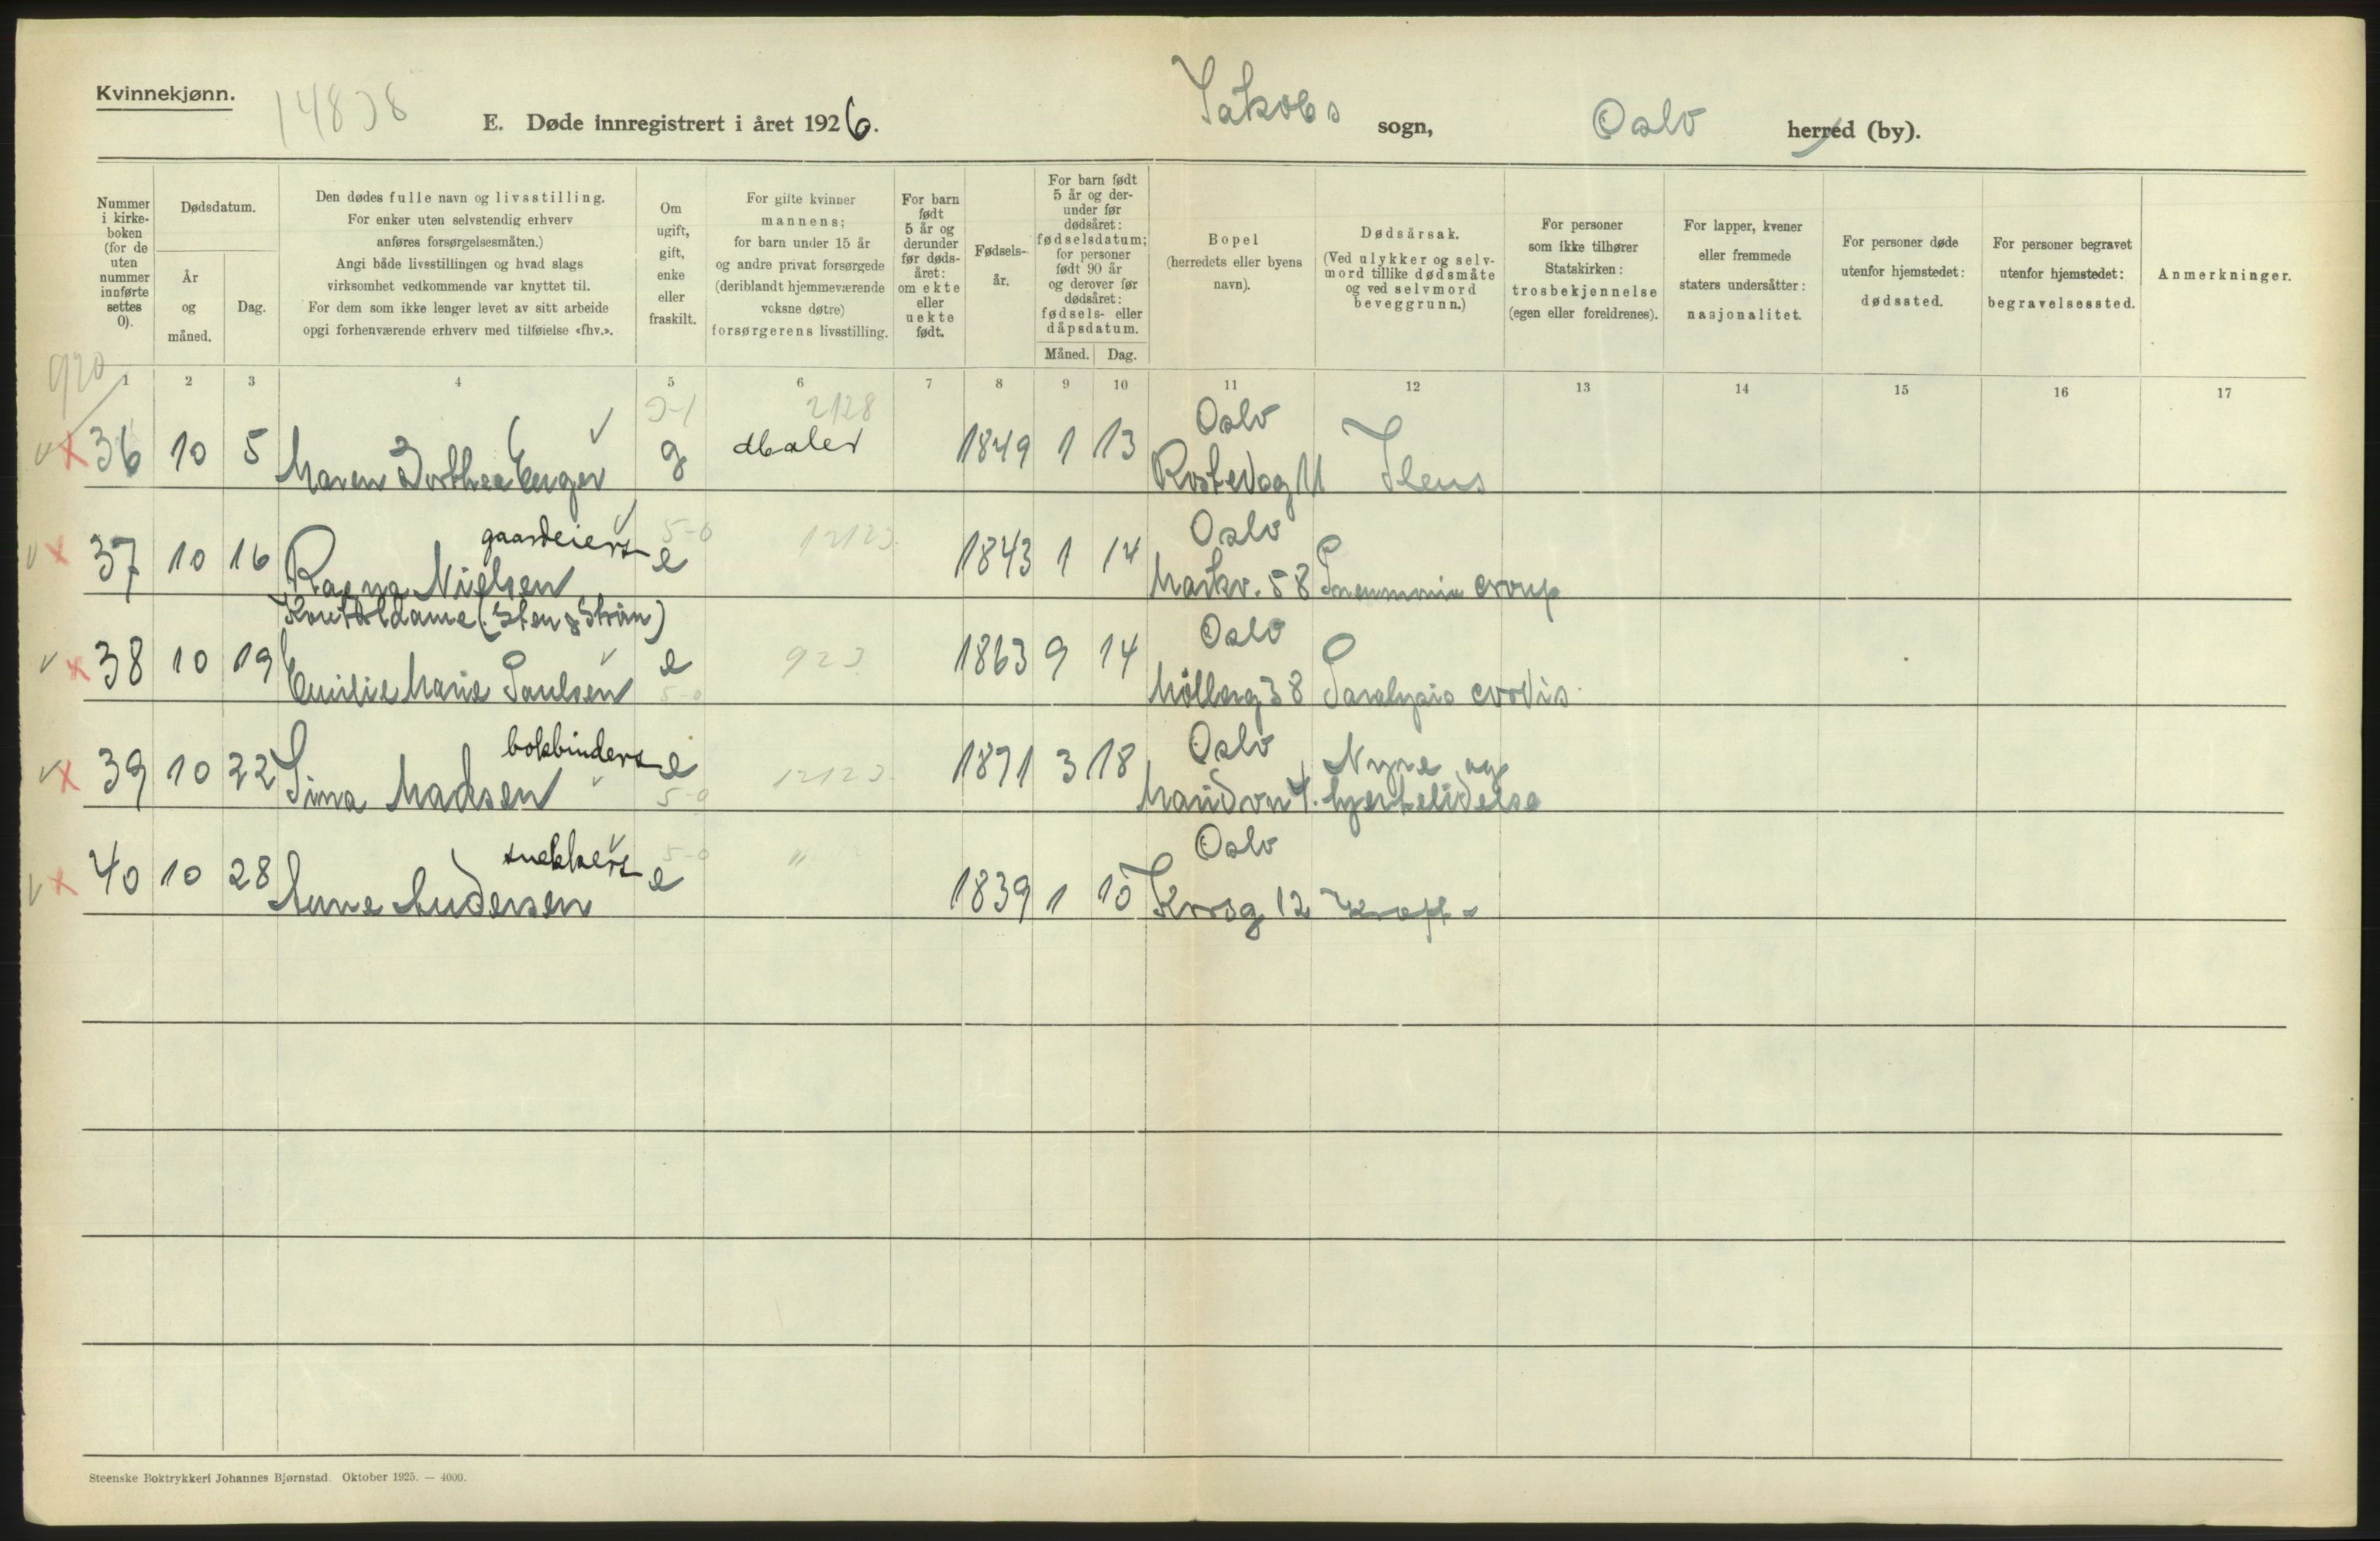 Kvinnekjønn.
E. Døde innregistrert i året 1926.
Jakobs sogn,
Oslo herred (by).
Nummer i kirkeboken (for de uten nummer innførte settes 0).
Dødsdatum.
År og måned.
Dag.
Den dødes fulle navn og livsstilling.
For enker uten selvstendig erhverv
anføres forsørgelsesmåten.)
Angi både livsstillingen og hvad slags
virksomhet vedkommende var knyttet til.
For dem som ikke lenger levet av sitt arbeide
opgi forhenværende erhverv med tilføielse «fhv.».
Om ugift, gift, enke eller fraskilt.
For gifte kvinner
mannens;
for barn under 15 år
og andre privat forsørgede
(deriblandt hjemmeværende
voksne døtre)
forsørgerens livsstilling.
For barn født 5 år og derunder før dødsåret: om ekte eller uekte født.
Fødselsår.
For barn født 5 år og derunder før dødsåret: fødselsdatum; for personer født 90 år og derover før dødsåret: fødsels- eller dåpsdatum.
Måned. Dag.
Bopel
(herredets eller byens
navn).
Dødsårsak.
(Ved ulykker og selvmord tillike dødsmåte og ved selvmord beveggrunn.)
For personer
som ikke tilhører
Statskirken:
trosbekjennelse
(egen eller foreldrenes).
For lapper, kvener
eller fremmede
staters undersåtter:
nasjonalitet.
For personer døde
utenfor hjemstedet:
dødssted.
For personer begravet
utenfor hjemstedet:
begravelsessted.
Anmerkninger.
1 2 3 4 5 6 7 8 9 10 11 12 13 14 15 16 17
2128
Oslo
36 10 5 Maren Dorthea Enger g Maler 1849 1 13 Ileus
gaardeiers 12123 Oslo
37 10 16 Ragna Nielsen e 1843 1 14 Markv. 58 Pneumonia croup
Kontordame (Sten & Strøm) Oslo
38 10 19 Emilie Marie Paulsen e 923 1863 9 14 Møllerg 38 Paralysis cordis
5-0
bokbinders Oslo Nyre og
39 10 22 Sina Madsen e 12123 1871 3 18 hjertelidelse
5-0
snekkers 5-0 " Oslo
40 10 28 Anne Andersen e 1839 1 10 Krosg 12
Steenske Boktrykkeri Johannes Bjørnstad. Oktober 1925. — 4000.